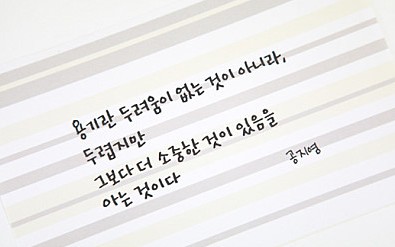 용기란 두려움이 없는 것이 아니라,
두렵지만
그보다 더 소중한 것이 있음을
아는 것이다
공지영